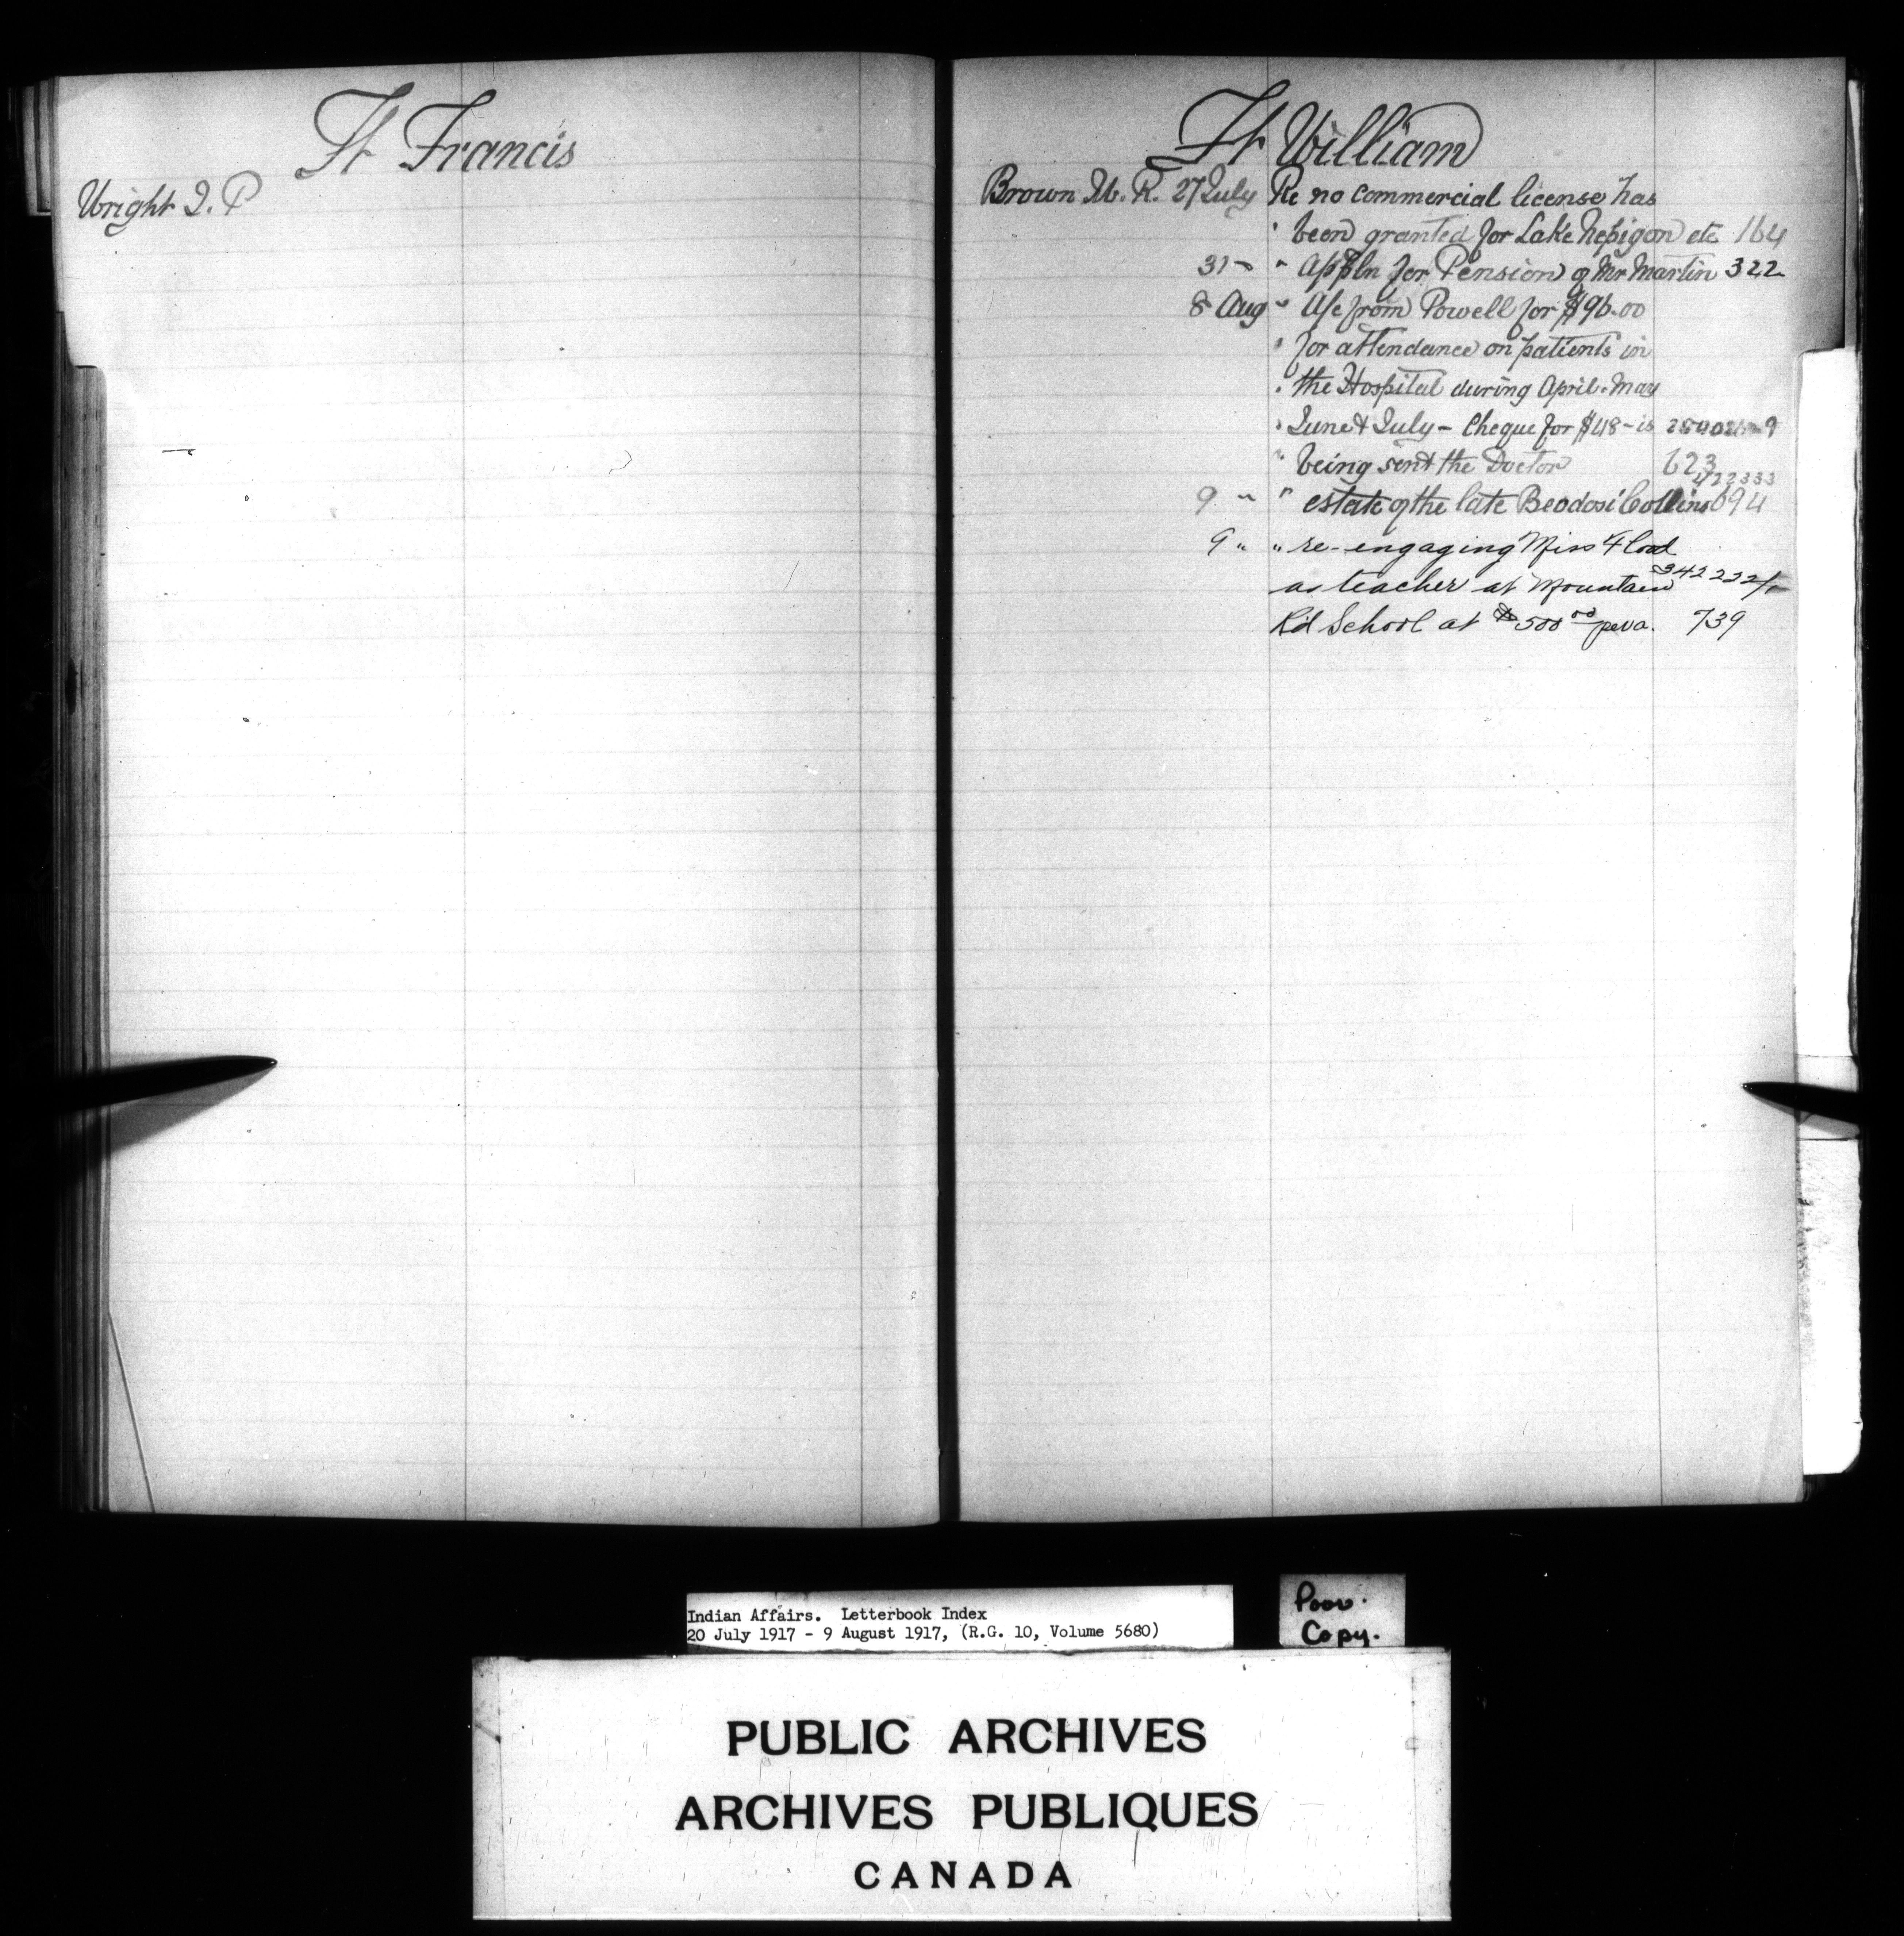 Ft Francis
Wright J. P
Ft William
Brown W. R. 27 July Re no commercial license has
" been granted for Lake Nepigon etc 164
31 " " Appln for Pension of Mr Martin 322
8 Aug " A/c from Powell for $96.00
" for attendance on patients in
" the Hospital during April. May
" June & July - Cheque for $48 - is
" being sent the Doctor 623
422333
9 " " estate of the late Beodosi Collins 694
9 " " re-engaging Miss Flood
as teacher at Mountain 342232/1
Rd School at $500 00 per a. 739
Indian Affairs. Letterbook Index
20 July 1917 - 9 August 1917, (R.G. 10, Volume 5680)
Poor.
Copy.
PUBLIC ARCHIVES
ARCHIVES PUBLIQUES
CANADA